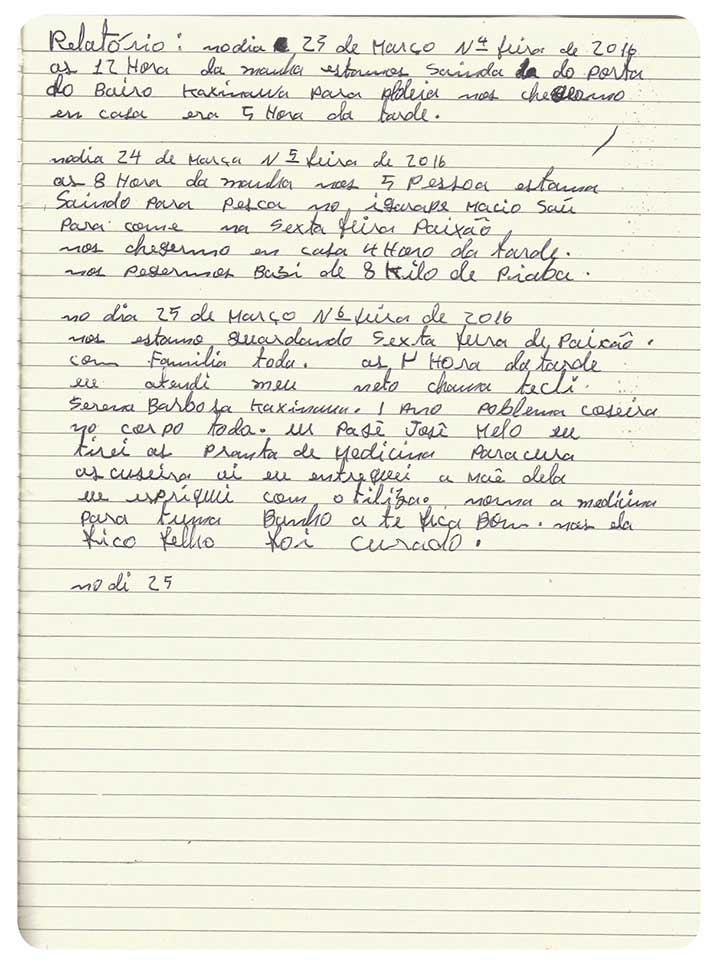 Relatório: no dia 23 de Março Nª feira de 2016
as 12 Hora da manha estamos Sainda do porta
do Bairo Kaxinawa para aldeia nos chegermo
en casa era 5 Hora da tarde.
nodia 24 de Março N 5 feira de 2016
as 8 Hora da manha nos 5 Pessoa estama
Saindo Para Pesca no igarape Macio Saú
Para come na Sexta feira Paixão
nos chegermo en casa 4 Horo da tarde.
nos Pegermos Basi de 8 Kilo de Piaba.
no dia 25 de Março Nº 6 feira de 2016
nos estamo guardando Sexta feira de Paixão.
com Familia toda. as Hora da tarde
eu atendi meu neto chama tecli
Serena Barbosa Kaxinawa. 1 Ano Poblema coseira
no corpo toda. eu Pasê José Melo eu
tirei as Pranta de Medicina Para cura
as cuseira ai eu entreguei a Maê dela
eu espriquei com otiliza. a medicina
para tuma Banho a te fica Bom. mas ela
fico foi curado.
no di 25